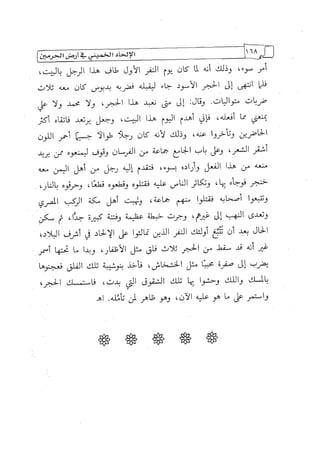 ١٦٨ الإلحاد الخميني في أرض الحرمين
أمر سوء، وذلك أنه لما كان يوم النفر الأول طاف هذا الرجل بالبيت،
فلما انتهى إلى الحجر الأسود جاء ليقبله فضربه بدبوس كان معه ثلاث
ضربات متواليات. وقال: إلى متى نعبد هذا الحجر، ولا محمد ولا علي
يمنعني مما أفعله، فإني أهدم اليوم هذا البيت، وجعل يرتعد فاتقاه أكثر
الحاضرين وتأخروا عنه، وذلك لأنه كان رجلاً طوالاً جسيمًا أحمر اللون
أشقر الشعر، وعلى باب الجامع جماعة من الفرسان وقوف ليمنعوه ممن يريد
منعه من هذا الفعل وأراده بسوء، فتقدم إليه رجل من أهل اليمن معه
خنجر فوجأه بها، وتكاثر الناس عليه فقتلوه وقطعوه قطعًا، وحرقوه بالنار،
وتتبعوا أصحابه فقتلوا منهم جماعة، ونهبت أهل مكة الركب المصري
وتعدى النهب إلى غيرهم، وجرت خبطة عظيمة وفتنة كبيرة جدًا، ثم سكن
الحال بعد أن تُتُبِّع أولئك النفر الذين تمالئوا على الإلحاد في أشرف البلاد،
غير أنه قد سقط من الحجر ثلاث فلق مثل الأظفار، وبدا ما تحتها أسمر
يضرب إلى صفرة محببًا مثل الخشخاش، فأخذ بنوشيبة تلك الفلق فعجنوها
بالمسك واللك وحشوا بها تلك الشقوق التي بدت، فاستمسك الحجر،
واستمر على ما هو عليه الآن، وهو ظاهر لمن تأمله. اهـ